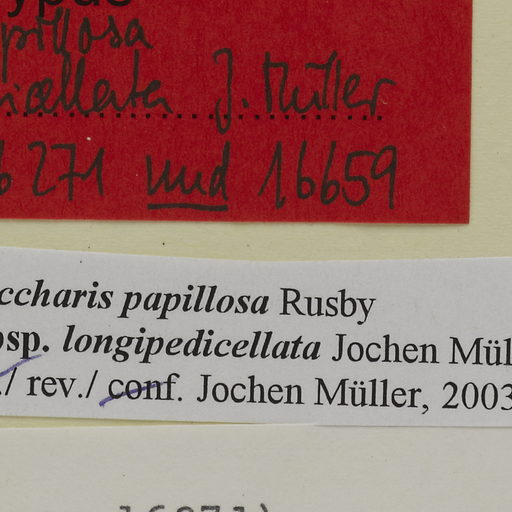 ypus
pillosa
icellata J. Müller
6271 und 16659
ccharis papillosa Rusby
bsp. longipedicellata Jochen Mül
./ rev./ conf. Jochen Müller, 2003
16271)